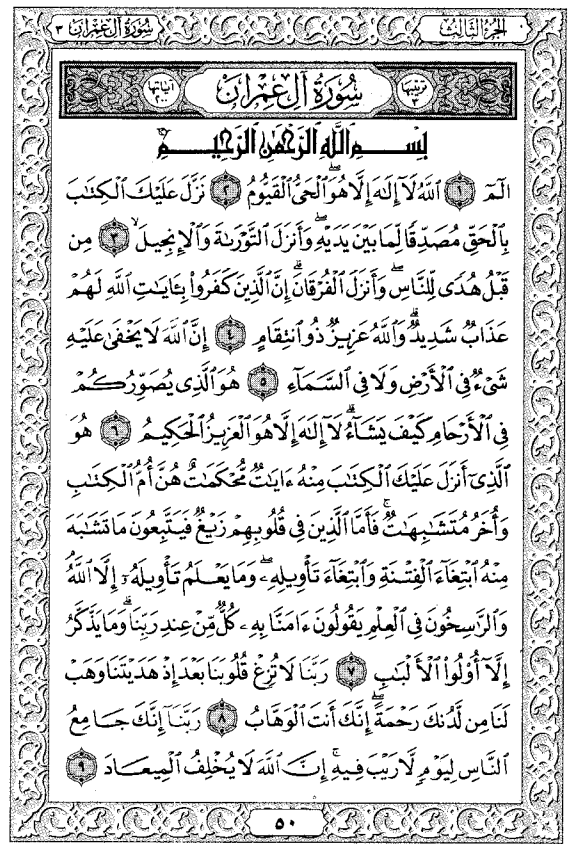 سُورَةُ آلِ عِمْرَانَ ٣ الجُزْءُ الثَّالِثُ
ترتيبها ٣ سُورَةُ آلِ عِمْرَانَ آياتها ٢٠٠
بِسْمِ ٱللَّهِ ٱلرَّحْمَٰنِ ٱلرَّحِيمِ
الٓمٓ ١ ٱللَّهُ لَآ إِلَٰهَ إِلَّا هُوَ ٱلْحَىُّ ٱلْقَيُّومُ ٢ نَزَّلَ عَلَيْكَ ٱلْكِتَٰبَ
بِٱلْحَقِّ مُصَدِّقًا لِّمَا بَيْنَ يَدَيْهِ وَأَنزَلَ ٱلتَّوْرَىٰةَ وَٱلْإِنجِيلَ ٣ مِن
قَبْلُ هُدًى لِّلنَّاسِ وَأَنزَلَ ٱلْفُرْقَانَ إِنَّ ٱلَّذِينَ كَفَرُوا۟ بِـَٔايَٰتِ ٱللَّهِ لَهُمْ
عَذَابٌ شَدِيدٌ وَٱللَّهُ عَزِيزٌ ذُو ٱنتِقَامٍ ٤ إِنَّ ٱللَّهَ لَا يَخْفَىٰ عَلَيْهِ
شَىْءٌ فِى ٱلْأَرْضِ وَلَا فِى ٱلسَّمَآءِ ٥ هُوَ ٱلَّذِى يُصَوِّرُكُمْ
فِى ٱلْأَرْحَامِ كَيْفَ يَشَآءُ لَآ إِلَٰهَ إِلَّا هُوَ ٱلْعَزِيزُ ٱلْحَكِيمُ ٦ هُوَ
ٱلَّذِىٓ أَنزَلَ عَلَيْكَ ٱلْكِتَٰبَ مِنْهُ ءَايَٰتٌ مُّحْكَمَٰتٌ هُنَّ أُمُّ ٱلْكِتَٰبِ
وَأُخَرُ مُتَشَٰبِهَٰتٌ فَأَمَّا ٱلَّذِينَ فِى قُلُوبِهِمْ زَيْغٌ فَيَتَّبِعُونَ مَا تَشَٰبَهَ
مِنْهُ ٱبْتِغَآءَ ٱلْفِتْنَةِ وَٱبْتِغَآءَ تَأْوِيلِهِۦ وَمَا يَعْلَمُ تَأْوِيلَهُۥٓ إِلَّا ٱللَّهُ
وَٱلرَّٰسِخُونَ فِى ٱلْعِلْمِ يَقُولُونَ ءَامَنَّا بِهِۦ كُلٌّ مِّنْ عِندِ رَبِّنَا وَمَا يَذَّكَّرُ
إِلَّآ أُو۟لُوا۟ ٱلْأَلْبَٰبِ ٧ رَبَّنَا لَا تُزِغْ قُلُوبَنَا بَعْدَ إِذْ هَدَيْتَنَا وَهَبْ
لَنَا مِن لَّدُنكَ رَحْمَةً إِنَّكَ أَنتَ ٱلْوَهَّابُ ٨ رَبَّنَآ إِنَّكَ جَامِعُ
ٱلنَّاسِ لِيَوْمٍ لَّا رَيْبَ فِيهِ إِنَّ ٱللَّهَ لَا يُخْلِفُ ٱلْمِيعَادَ ٩
٥٠